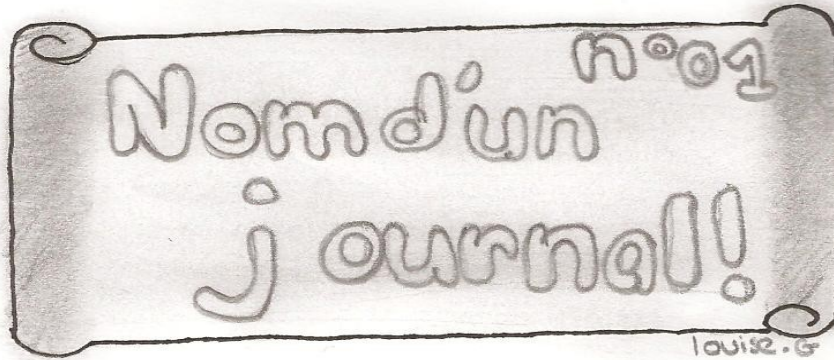 n°01
Nom d'un
journal!
louise.G